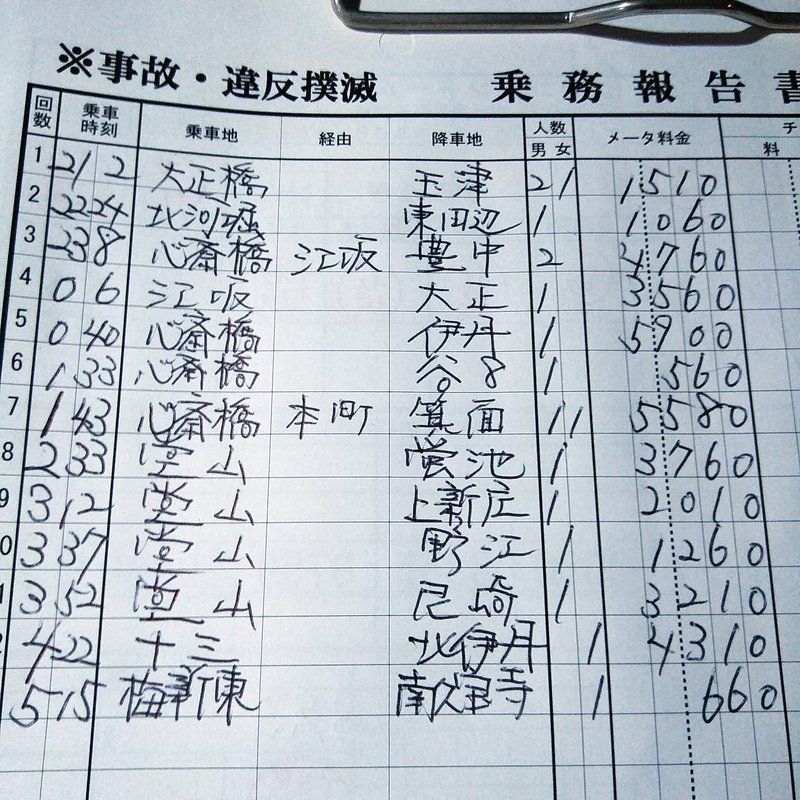 ※事故・違反撲滅 乗務報告書
回数 乗車時刻 乗車地 経由 降車地 人数 男 女 メータ料金 チ 料
1 21 2 大正橋 玉津 2 1 1510
2 22 24 北河堀 東田辺 1 1060
3 23 8 心斎橋 江坂 豊中 2 4760
4 0 6 江坂 大正 1 3560
5 0 40 心斎橋 伊丹 1 5900
6 1 33 心斎橋 谷8 1 560
7 1 43 心斎橋 本町 箕面 1 1 5580
8 2 33 堂山 蛍池 1 3760
9 3 12 堂山 上新庄 1 2010
0 3 37 堂山 野江 1 1260
1 3 52 堂山 尼崎 1 3210
2 4 22 十三 北伊丹 1 4310
5 15 梅新東 南久宝寺 1 660